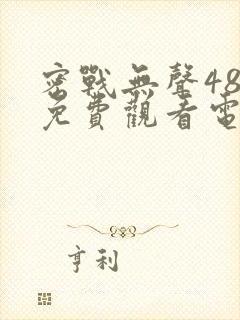 密戰無聲48
免費觀看電
亨利